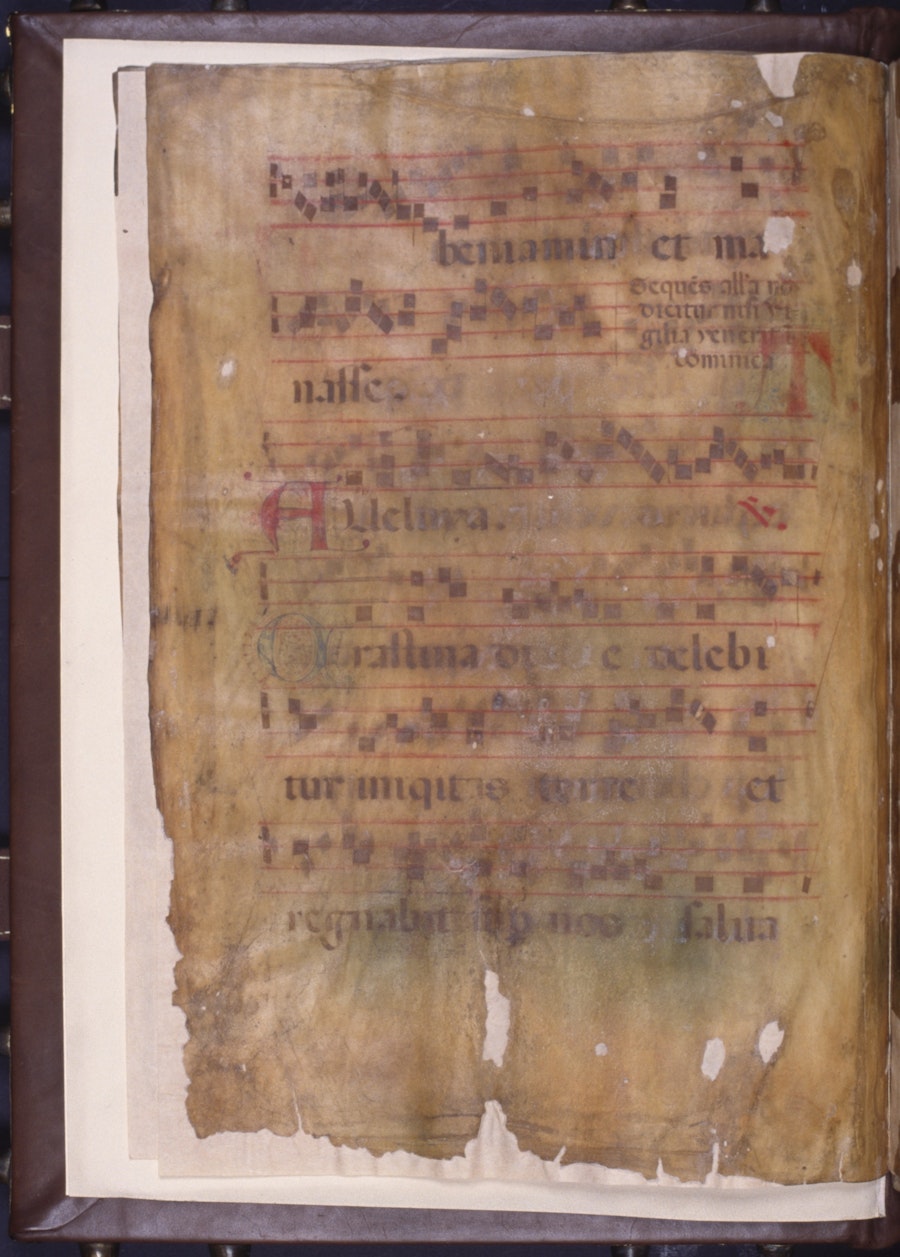 beniamin et ma
Sequēs all'a nō
dicitur nisi vi-
gilia venerit ī
dominica
nasse.
Alleluya. ℣.
Crastina die delebi
tur iniquitas terre et
regnabit sup nos salua